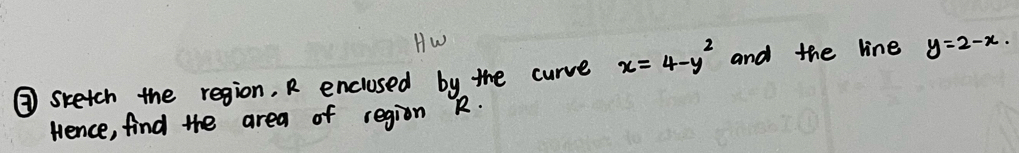 HW
⑦ Sketch the region, R enclosed by the curve x = 4-y² and the line y=2-x.
Hence, find the area of region R.